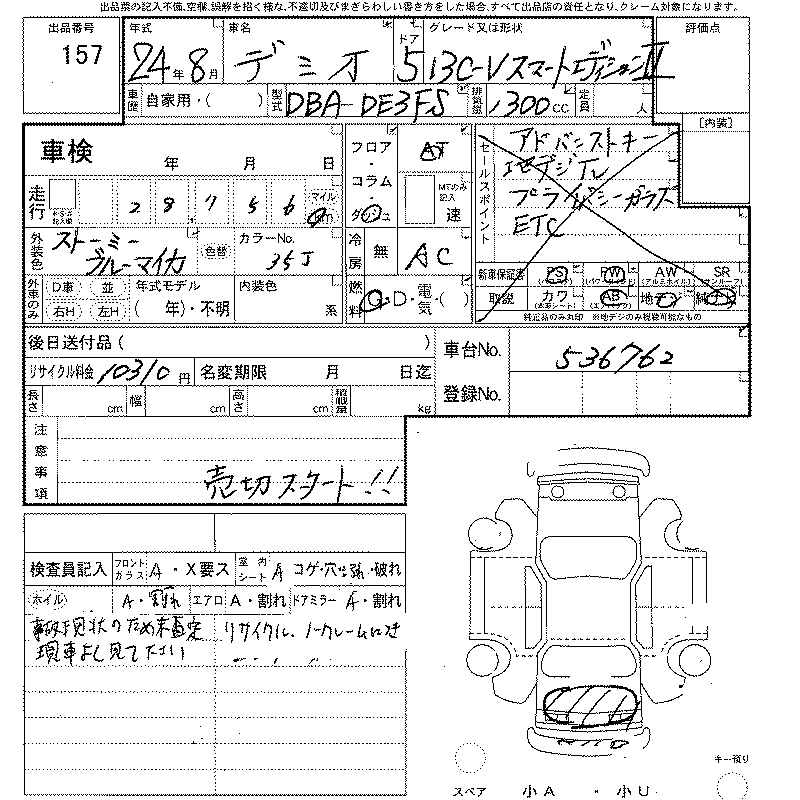 出品票の記入不備、空欄、誤解を招く様な、不適切及びまぎらわしい書き方をした場合、すべて出品店の責任となり、クレーム対象になります。
出品番号
157
年式 24年 8月
車名 デミオ
ドア 5
グレード又は形状 13C-V スマートエディションⅡ
評価点
車歴 自家用・( )
型式 DBA-DE3FS
排気量 1300cc
定員 人
[内装]
車検 年 月 日
フロア・コラム・ダッシュ
AT
MTのみ記入 速
セールスポイント
アドバンストキー
地デジTV
プライバシーガラス
ETC
走行 287556 マイル km
外装色 ストーミーブルーマイカ
色替
カラーNo. 35J
冷房 無 AC
新車保証書 PS PW AW SR
(パワステ) (パワーウィンド) (アルミホイル) (サンルーフ)
取説 カワ AB 地デジ 純ナビ
(本革シート) (エアバッグ)
純正品のみ丸印 ※地デジのみ視聴可能なもの
外車のみ D車 並 右H 左H
年式モデル ( 年)・不明
内装色 系
燃料 G・D・電気・( )
後日送付品 ( )
車台No. 536762
リサイクル料金 10310円
名変期限 月 日迄
登録No.
長さ cm 幅 cm 高さ cm 積載量 kg
注意事項
売切スタート!!
検査員記入 フロントガラス A・X要ス 室内シート A コゲ・穴・破れ
ホイル A・割れ エアロ A・割れ ドアミラー A・割れ
事故現状のため未査定 リサイクル、ノークレームにき
現車よく見て下さい
キー預り
スペア 小A ・ 小U